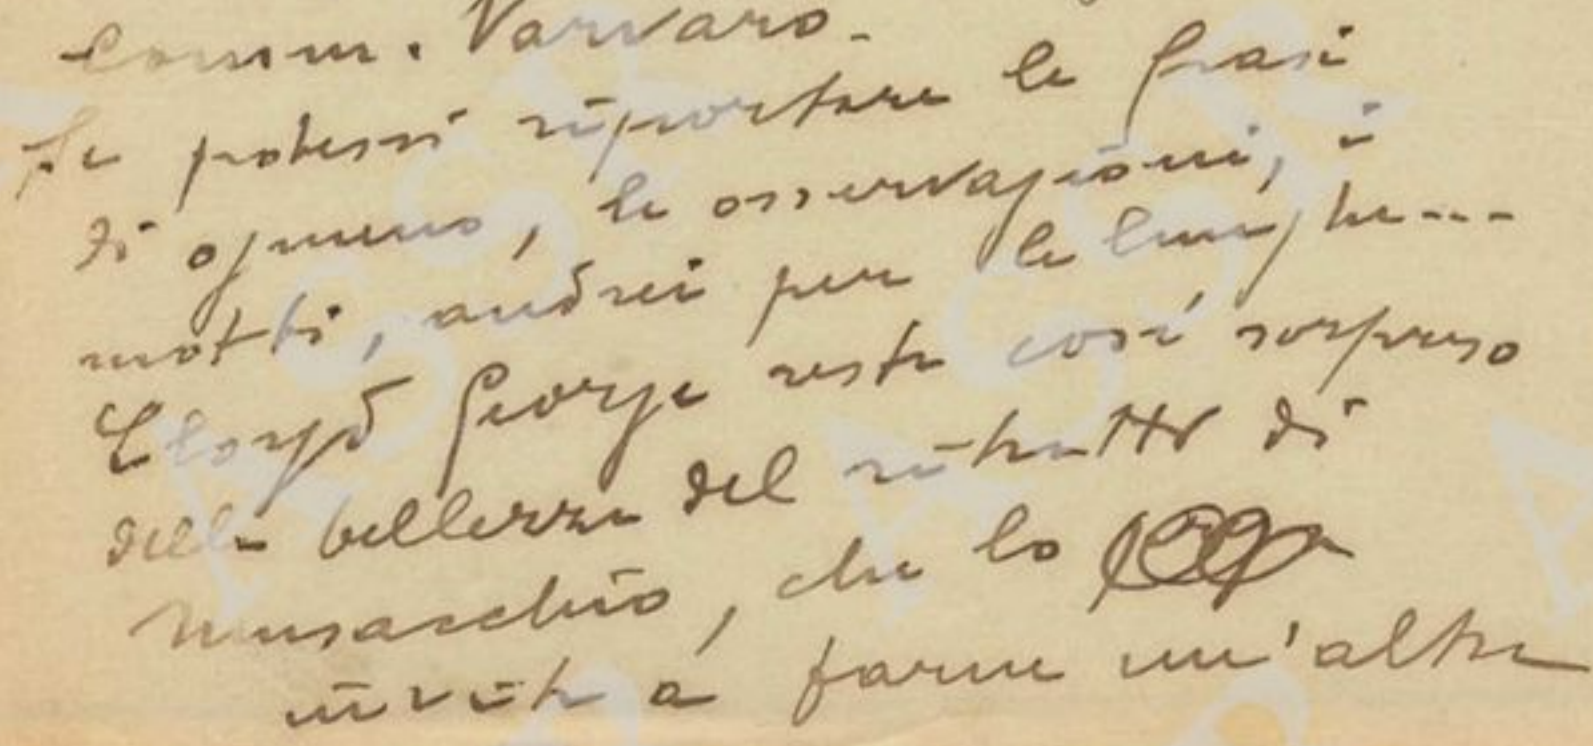 Comm. Varvaro.
Se potessi riportare le frasi
di ognuno, le osservazioni, i
motti, andrei per le lunghe...
Lloyd George resta così sorpreso
della bellezza del ritratto di
Musacchio, che lo
invita a farne un'altra